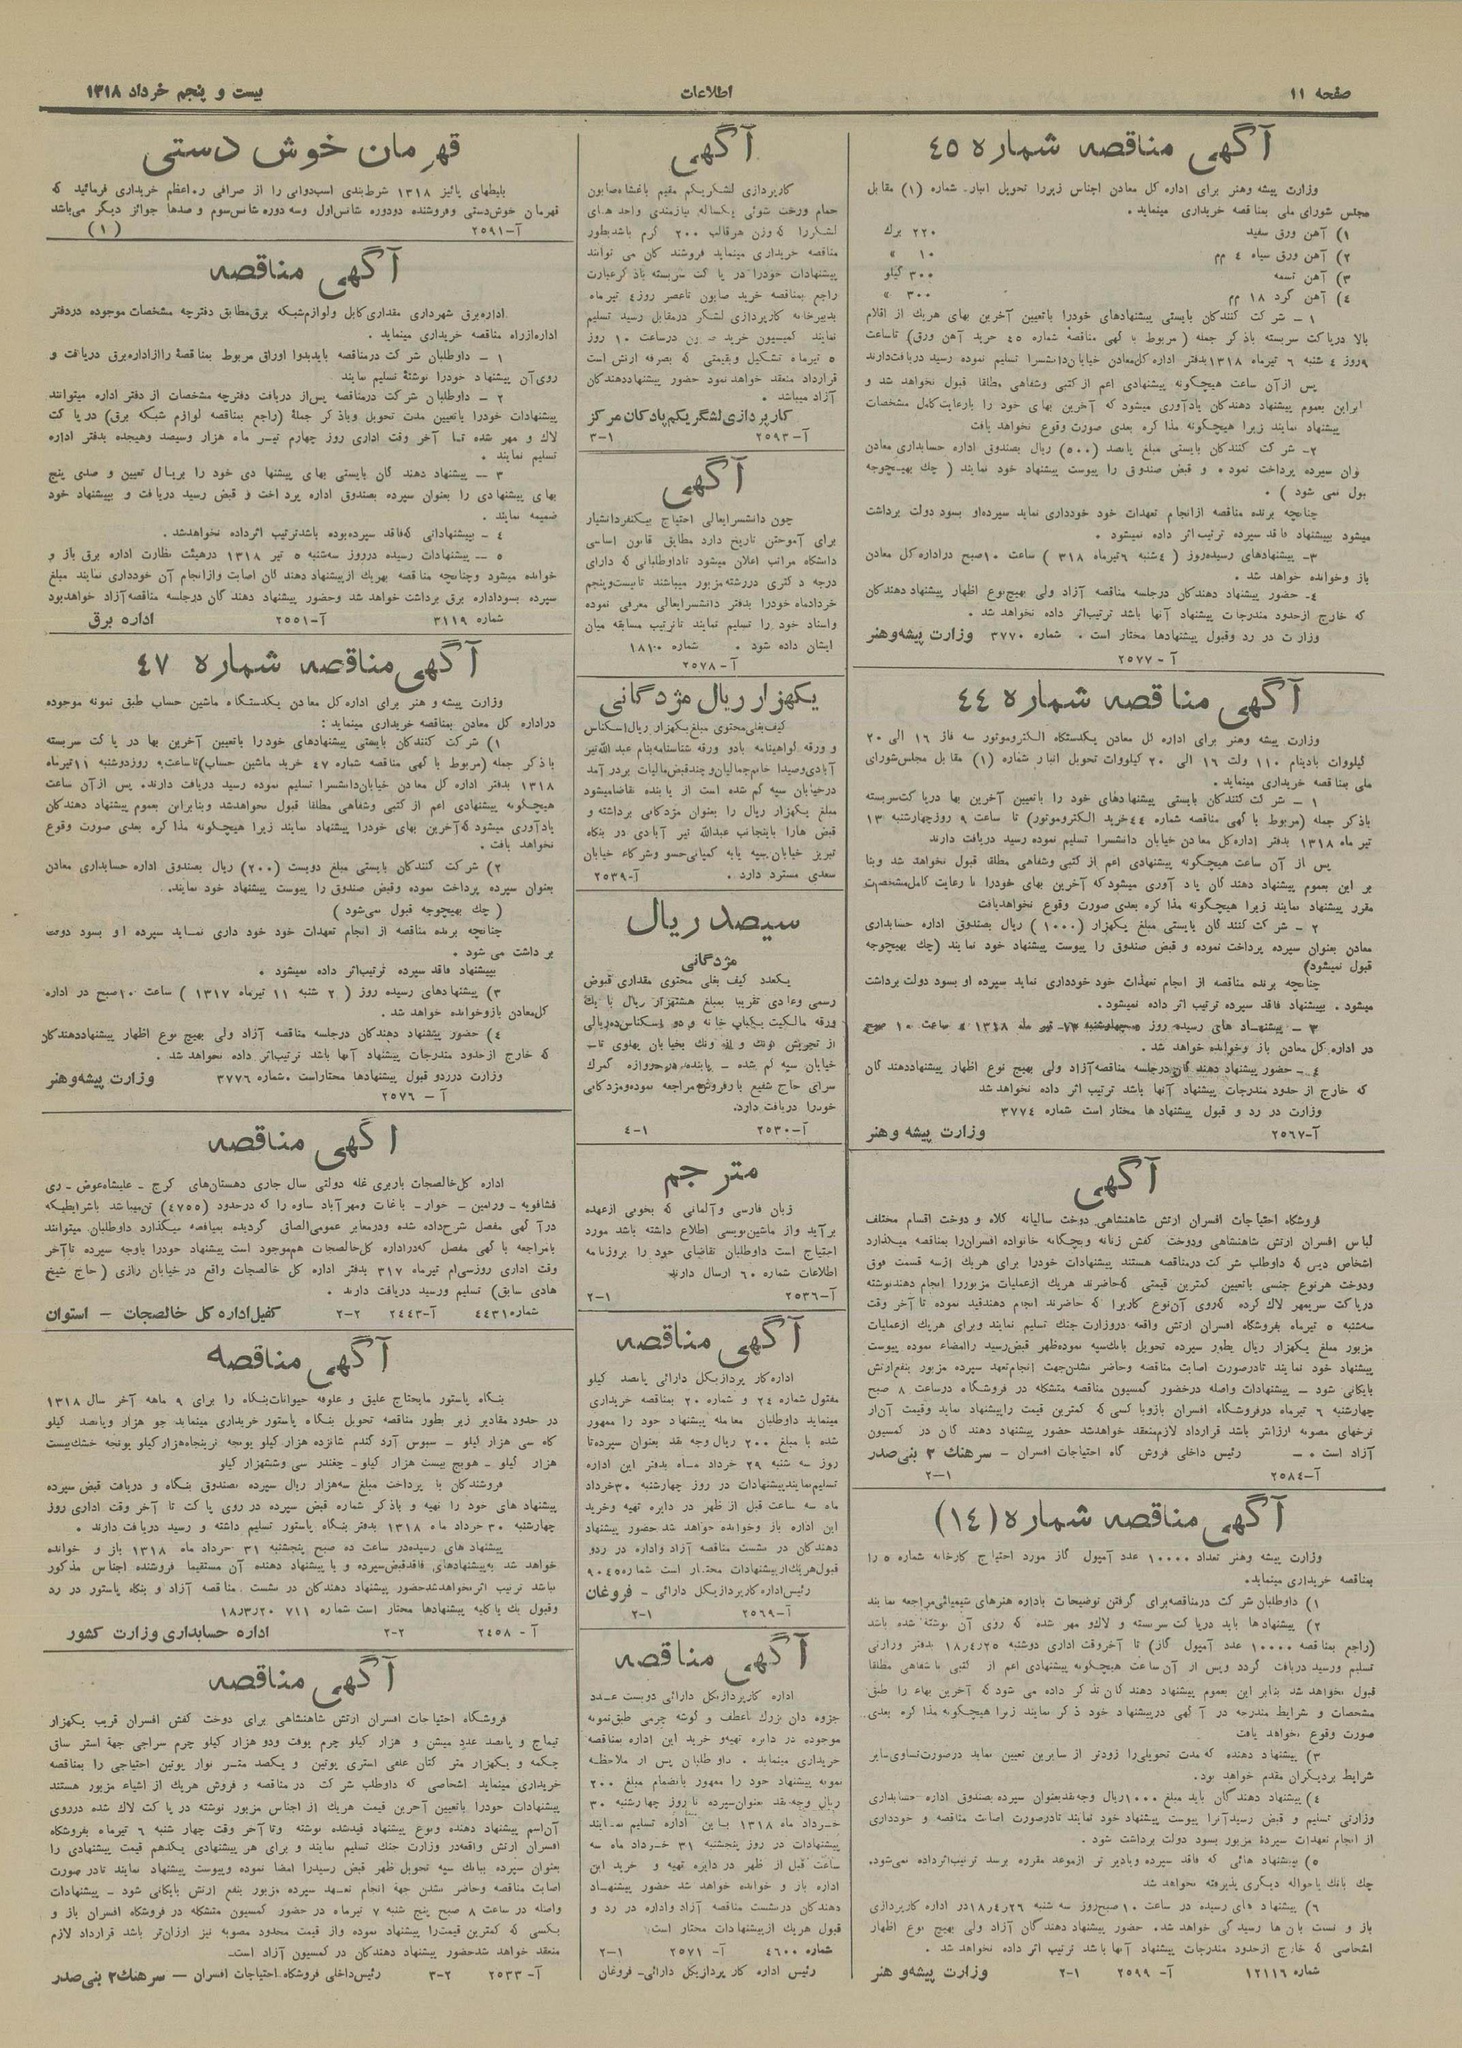 صفحه ۱۱
اطلاعات
بیست و پنجم خرداد ۱۳۱۸
آگهی مناقصه شماره ۴۵
وزارت پیشه وهنر برای اداره کل معادن اجناس زیررا تحویل انبار شماره (۱) مقابل
مجلس شورای ملی بمناقصه خریداری مینماید.
۱) آهن ورق سفید ۲۲۰ برك
۲) آهن ورق سیاه ۴ مم ۱۰ »
۳) آهن تسمه ۳۰۰ کیلو
۴) آهن گرد ۱۸ مم ۳۰۰ »
۱ – شرکت کنندگان بایستی پیشنهادهای خودرا باتعیین آخرین بهای هریك از اقلام
بالا درپاکت سربسته باذکر جمله (مربوط باگهی مناقصه شماره ۴۵ خرید آهن ورق) تاساعت
۹روز ۴ شنبه ۶ تیرماه ۱۳۱۸بدفتر اداره کل‌معادن خیابان‌دانشسرا تسلیم نموده رسید دریافت‌دارند
پس ازآن ساعت هیچگونه پیشنهادی اعم از کتبی وشفاهی مطلقا قبول نخواهد شد و
ابراین بعموم پیشنهاد دهندگان یادآوری میشود که آخرین بهای خود را بارعایت‌کامل مشخصات
پیشنهاد نمایند زیرا هیچگونه مذاکره بعدی صورت وقوع نخواهد یافت
۲- شرکت کنندگان بایستی مبلغ پانصد (۵۰۰) ریال بصندوق اداره حسابداری معادن
وان سپرده پرداخت نموده و قبض صندوق را پیوست پیشنهاد خود نمایند ( چك بهیچوجه
بول نمی شود ) .
چنانچه برنده مناقصه ازانجام تعهدات خود خودداری نماید سپرده‌او بسود دولت برداشت
میشود بپیشنهاد فاقد سپرده ترتیب اثر داده نمیشود .
۳- پیشنهادهای رسیده‌روز ( ۴شنبه ۶تیرماه ۳۱۸ ) ساعت ۱۰صبح دراداره کل معادن
باز وخوانده خواهد شد .
۴- حضور پیشنهاد دهندگان درجلسه مناقصه آزاد ولی بهیچ‌نوع اظهار پیشنهاد دهندکان
که خارج ازحدود مندرجات پیشنهاد آنها باشد ترتیب‌اثر داده نخواهد شد .
وزارت در رد وقبول پیشنهادها مختار است . شماره ۳۷۷۰ وزارت پیشه‌وهنر
آ – ۲۵۷۷
آگهی مناقصه شماره ۴۴
وزارت پیشه وهنر برای اداره کل معادن یکدستگاه الکتروموتور سه فاز ۱۶ الی ۲۰
کیلووات بادینام ۱۱۰ ولت ۱۶ الی ۲۰ کیلووات تحویل انبار شماره (۱) مقابل مجلس‌شورای
ملی بمناقصه خریداری مینماید.
۱ – شرکت کنندگان بایستی پیشنهادهای خود را باتعیین آخرین بها درپاکت‌سربسته
باذکر جمله (مربوط باگهی مناقصه شماره ۴۴خرید الکتروموتور) تا ساعت ۹ روزچهارشنبه ۱۳
تیر ماه ۱۳۱۸ بدفتر اداره‌کل معادن خیابان دانشسرا تسلیم نموده رسید دریافت دارند
پس از آن ساعت هیچگونه پیشنهادی اعم از کتبی وشفاهی مطلقا قبول نخواهد شد وبنا
بر این بعموم پیشنهاد دهندگان یاد آوری میشودکه آخرین بهای خودرا با رعایت کامل‌مشخصات
مقرر پیشنهاد نمایند زیرا هیچگونه مذاکره بعدی صورت وقوع نخواهدیافت
۲ – شرکت کنندگان بایستی مبلغ یکهزار (۱۰۰۰) ریال بصندوق اداره حسابداری
معادن بعنوان سپرده پرداخت نموده و قبض صندوق را پیوست پیشنهاد خود نمایند (چك بهیچوجه
قبول نمیشود)
چنانچه برنده مناقصه از انجام تعهدات خود خودداری نماید سپرده او بسود دولت برداشت
میشود . بپیشنهاد فاقد سپرده ترتیب اثر داده نمیشود.
در اداره کل معادن باز وخوانده خواهد شد .
۴ – حضور پیشنهاد دهندگان درجلسه مناقصه‌آزاد ولی بهیچ نوع اظهار پیشنهاددهندگان
که خارج از حدود مندرجات پیشنهاد آنها باشد ترتیب اثر داده نخواهد شد
وزارت در رد و قبول پیشنهادها مختار است شماره ۳۷۷۴
آ–۲۵۶۷ وزارت پیشه وهنر
آگهی
فروشگاه احتیاجات افسران ارتش شاهنشاهی دوخت سالیانه کلاه و دوخت اقسام مختلف
لباس افسران ارتش شاهنشاهی ودوخت کفش زنانه وبچگانه خانواده افسران‌را بمناقصه میگذارد
اشخاص که داوطلب شرکت درمناقصه هستند پیشنهادات خودرا برای هریك ازسه قسمت فوق
ودوخت هرنوع جنسی باتعیین کمترین قیمتی که‌حاضرند هریك ازعملیات مزبوررا انجام دهندنوشته
درپاکت سربمهر لاك کرده که‌روی آن‌نوع کاریرا که حاضرند انجام دهندقید نموده تاآخر وقت
سه‌شنبه ۵ تیرماه بفروشگاه افسران ارتش واقعه دروزارت جنك تسلیم نمایند وبرای هریك ازعملیات
مزبور مبلغ یکهزار ریال بطور سپرده تحویل بانك‌سپه نموده‌ظهر قبض‌رسید راامضاء نموده پیوست
پیشنهاد خود نمایند تادرصورت اصابت مناقصه وحاضر نشدن‌جهت انجام‌تعهد سپرده مزبور بنفع‌ارتش
بایگانی شود – پیشنهادات واصله درحضور کمسیون مناقصه متشکله در فروشگاه درساعت ۸ صبح
چهارشنبه ۶ تیرماه درفروشگاه افسران بازوبا کسی که کمترین قیمت راپیشنهاد نماید وقیمت آن‌از
نرخهای مصوبه ارزانتر باشد قرارداد لازم‌منعقد خواهدشد حضور پیشنهاد دهندگان در کمسیون
آزاد است . – رئیس داخلی فروش گاه احتیاجات افسران – سرهنك ۲ بنی‌صدر
آ–۲۵۸۴ ۱–۲
آگهی مناقصه شماره(۱۴)
وزارت پیشه وهنر تعداد ۱۰۰۰۰ عدد آمپول گاز مورد احتیاج کارخانه شماره ۵ را
بمناقصه خریداری مینماید.
۱) داوطلبان شرکت درمناقصه‌برای گرفتن توضیحات باداره هنرهای شیمیائی‌مراجعه نمایند
۲) پیشنهادها باید درپاکت سربسته و لاك‌و مهر شده که روی آن نوشته شده باشد
(راجع بمناقصه ۱۰۰۰۰ عدد آمپول گاز) تا آخروقت اداری دوشنبه ۱۸/۴/۲۵ بدفتر وزارتی
تسلیم ورسید دریافت گردد وپس از آن ساعت هیچگونه پیشنهادی اعم از کتبی یاشفاهی مطلقا
قبول نخواهد شد بنابر این بعموم پیشنهاد دهندگان تذکر داده می شود که آخرین بهاء را طبق
مشخصات و شرایط مندرجه در آگهی درپیشنهاد خود ذکر نمایند زیرا هیچگونه مذاکره بعدی
صورت وقوع نخواهد یافت
۳) پیشنهاد دهنده که‌مدت تحویلی‌را زودتر از سایرین تعیین نماید درصورت‌تساوی‌سایر
شرایط بردیگران مقدم خواهد بود.
۴) پیشنهاد دهندگان باید مبلغ ۱۰۰۰ریال وجه‌نقدبعنوان سپرده‌بصندوق اداره حسابداری
وزارتی تسلیم و قبض رسیدآنرا پیوست پیشنهاد خود نمایند تادرصورت اصابت مناقصه و خودداری
از انجام تعهدات سپردهٔ مزبور بسود دولت برداشت شود .
۵) پیشنهاد هائی که فاقد سپرده ویادیر تر ازموعد مقرره برسد ترتیب‌اثرداده نمی‌شود.
چك بانك یاحواله دیگری پذیرفته نخواهد شد
۶) پیشنهاد های رسیده در ساعت ۱۰صبح‌روز سه شنبه ۱۸/۴/۲۶در اداره کارپردازی
باز و نسبت بان‌ها رسیدگی خواهد شد. حضور پیشنهاد دهندگان آزاد ولی بهیچ نوع اظهار
اشخاصی که خارج ازحدود مندرجات پیشنهاد آنها باشد ترتیب اثر داده نخواهد شد .
شماره ۱۲۱۱۶ آ- ۲۵۹۹ ۱-۲ وزارت پیشه‌و هنر
آگهی
کارپردازی لشکریکم مقیم باغشاه‌صابون
حمام ورخت شوئی یکساله نیازمندی واحدهای
لشکررا که وزن هرقالب ۲۰۰ گرم باشدبطور
مناقصه خریداری مینماید فروشندگان می توانند
پیشنهادات خودرا در پاکت سربسته باذکرعبارت
راجع بمناقصه خرید صابون تاعصر روز۴ تیرماه
بدبیرخانه کارپردازی لشکر درمقابل رسید تسلیم
نمایند کمیسیون خرید صابون درساعت ۱۰ روز
۵ تیرماه تشکیل وبقیمتی که بصرفه ارتش است
قرارداد منعقد خواهدنمود حضور پیشنهاددهندگان
آزاد میباشد .
کارپردازی‌لشگریکم‌پادگان مرکز
آ–۲۵۹۳ ۱–۳
آگهی
چون دانشسرایعالی احتیاج بیکنفردانشیار
برای آموختن تاریخ دارد مطابق قانون اساسی
دانشگاه مراتب اعلان میشود تاداوطلبانی که دارای
درجه دکتری دررشته‌مزبور میباشند تابیست‌وپنجم
خردادماه خودرا بدفتر دانشسرایعالی معرفی نموده
واسناد خود را تسلیم نمایند تاترتیب مسابقه میان
ایشان داده شود . شماره ۱۸۱۰
آ–۲۵۷۸
یکهزار ریال مژدگانی
کیف‌بغلی‌محتوی مبلغ‌یکهزار ریال‌اسکناس
و ورقه گواهینامه بادو ورقه شناسنامه‌بنام عبدالله‌تیر
آبادی‌وصیدا خانم‌جمالیان‌وچندقبض‌مالیات بردرآمد
درخیابان سپه گم شده است از یابنده تقاضامیشود
مبلغ یکهزار ریال را بعنوان مژدگانی برداشته و
قبض هارا باینجانب عبدالله تیر آبادی در بنگاه
تبریز خیابان‌سپه یابه کمپانی‌حسو وشرکاء خیابان
سعدی مسترد دارد . آ–۲۵۳۹
سیصد ریال
مژدگانی
یکعدد کیف بغلی محتوی مقداری قبوض
رسمی وعادی تقریبا بمبلغ هشتهزار ریال با یك
ورقه مالکیت یکباب خانه و دو اسکناس‌ده‌ریالی
خیابان سپه گم شده – یابنده دروازه گمرك
سرای حاج شفیع مراجعه نموده‌ومژدگانی
خودرا دریافت دارد.
آ–۲۵۳۰ ۱–۴
مترجم
زبان فارسی وآلمانی که بخوبی ازعهده
برآید واز ماشین‌نویسی اطلاع داشته باشد مورد
احتیاج است داوطلبان تقاضای خود را بروزنامه
اطلاعات شماره ۶۰ ارسال دارند
آ–۲۵۳۶ ۱–۲
آگهی مناقصه
اداره‌کار پردازیکل دارائی پانصد کیلو
مفتول شماره ۲۴ و شماره ۲۰ بمناقصه خریداری
مینماید داوطلبان معامله پیشنهاد خود را ممهور
شده با مبلغ ۲۰۰ ریال وجه نقد بعنوان سپرده‌تا
روز سه شنبه ۲۹ خرداد ماه بدفتر این اداره
تسلیم‌نمایندپیشنهادات در روز چهارشنبه ۳۰خرداد
ماه سه ساعت قبل از ظهر در دایره تهیه وخرید
این اداره باز وخوانده خواهد شد حضور پیشنهاد
دهندگان در نشست مناقصه آزاد واداره در ردو
قبول‌هریك‌ازپیشنهادات مختار است شماره ۹۰۴۵
رئیس‌اداره‌کارپردازیکل دارائی – فروغان
آ–۲۵۶۹ ۱–۲
آگهی مناقصه
اداره کارپردازیکل دارائی دویست عدد
جزوه دان بزرك باعطف و گوشه چرمی طبق‌نمونه
موجوده در دایره تهیه‌و خرید این اداره بمناقصه
خریداری مینماید. داوطلبان پس از ملاحظه
نمونه پیشنهاد خود را ممهور بانضمام مبلغ ۲۰۰
ریال وجه‌نقد بعنوان‌سپرده تا روز چهارشنبه ۳۰
خرداد ماه ۱۳۱۸ باین اداره تسلیم نمایند
پیشنهادات در روز پنجشنبه ۳۱ خرداد ماه سه
ساعت قبل از ظهر در دایره تهیه و خرید این
اداره باز و خوانده خواهد شد حضور پیشنهاد
دهندگان درنشست مناقصه آزاد واداره در رد و
قبول هریك ازپیشنهادات مختار است.
شماره ۴۶۰۰ آ- ۲۵۷۱ ۱-۲
رئیس اداره کار پردازیکل دارائی- فروغان
قهرمان خوش دستی
بابطهای پائیز ۱۳۱۸ شرط‌بندی اسب‌دوانی را از صرافی ره‌اعظم خریداری فرمائید که
قهرمان خوش‌دستی وفروشنده دودوره شانس‌اول وسه دوره شانس‌سوم و صدها جوائز دیگر می‌باشد
آ–۲۵۹۱ (۱)
آگهی مناقصه
اداره‌برق شهرداری مقداری‌کابل ولوازم‌شبکه برق‌مطابق دفترچه مشخصات موجوده دردفتر
اداره‌ازراه مناقصه خریداری مینماید .
۱ – داوطلبان شرکت درمناقصه بایدبدوا اوراق مربوط بمناقصهٔ راازاداره‌برق دریافت و
روی‌آن پیشنهاد خودرا نوشتهٔ تسلیم نمایند
۲ – داوطلبان شرکت درمناقصه پس‌از دریافت دفترچه مشخصات از دفتر اداره میتوانند
پیشنهادات خودرا باتعیین مدت تحویل وباذکر جملهٔ (راجع بمناقصه لوازم شبکه برق) درپاکت
لاك و مهر شده تا آخر وقت اداری روز چهارم تیر ماه هزار وسیصد وهیجده بدفتر اداره
تسلیم نمایند .
۳ – پیشنهاد دهندگان بایستی بهای پیشنهادی خود را بریال تعیین و صدی پنج
بهای پیشنهادی را بعنوان سپرده بصندوق اداره پرداخت و قبض رسید دریافت و بپیشنهاد خود
ضمیمه نمایند .
۴ – بپیشنهاداتی که‌فاقد سپرده‌بوده باشدترتیب اثرداده نخواهدشد.
۵ – پیشنهادات رسیده درروز سه‌شنبه ۵ تیر ۱۳۱۸ درهیئت نظارت اداره برق باز و
خوانده میشود وچنانچه مناقصه بهریك ازپیشنهاد دهندگان اصابت وازانجام آن خودداری نمایند مبلغ
سپرده بسوداداره برق برداشت خواهد شد وحضور پیشنهاد دهندگان درجلسه مناقصه‌آزاد خواهدبود
شماره ۳۱۱۹ آ–۲۵۵۱ اداره برق
آگهی مناقصه شماره ۴۷
وزارت پیشه و هنر برای اداره‌کل معادن یکدستگاه ماشین حساب طبق نمونه موجوده
دراداره کل معادن بمناقصه خریداری مینماید:
۱) شرکت کنندگان بایستی پیشنهادهای خودرا باتعیین آخرین بها در پاکت سربسته
باذکر جمله (مربوط باگهی مناقصه شماره ۴۷ خرید ماشین حساب)تاساعت۹ روزدوشنبه ۱۱تیرماه
۱۳۱۸ بدفتر اداره کل معادن خیابان‌دانشسرا تسلیم نموده رسید دریافت دارند. پس ازآن ساعت
هیچگونه پیشنهادی اعم از کتبی وشفاهی مطلقا قبول نخواهدشد وبنابراین بعموم پیشنهاد دهندکان
یادآوری میشودکه‌آخرین بهای خودرا پیشنهاد نمایند زیرا هیچگونه مذاکره بعدی صورت وقوع
نخواهد یافت .
۲) شرکت کنندگان بایستی مبلغ دویست (۲۰۰) ریال بصندوق اداره حسابداری معادن
بعنوان سپرده پرداخت نموده وقبض صندوق را پیوست پیشنهاد خود نمایند.
( چك بهیچوجه قبول نمی‌شود )
چنانچه برنده مناقصه از انجام تعهدات خود خود داری نماید سپرده او بسود دولت
برداشت می شود .
بپیشنهاد فاقد سپرده ترتیب‌اثر داده نمیشود .
۳) پیشنهادهای رسیده روز ( ۲ شنبه ۱۱ تیرماه ۱۳۱۷ ) ساعت ۱۰صبح در اداره
کل‌معادن بازوخوانده خواهد شد.
۴) حضور پیشنهاد دهندگان درجلسه مناقصه آزاد ولی بهیچ نوع اظهار پیشنهاددهندکان
که خارج ازحدود مندرجات پیشنهاد آنها باشد ترتیب‌اثر داده نخواهد شد .
وزارت درردو قبول پیشنهادها مختاراست .شماره ۳۷۷۶ وزارت پیشه‌وهنر
آ – ۲۵۷۶
آگهی مناقصه
اداره کل‌خالصجات باربری غله دولتی سال جاری دهستان‌های کرج – علیشاه‌عوض -ری
فشافویه –ورامین – خوار- باغات ومهرآباد ساوه را که درحدود (۴۷۵۵) تن‌میباشد باشرایطیکه
درآگهی مفصل شرح‌داده شده ودرمعابر عمومی‌الصاق گردیده بمناقصه میگذارد داوطلبان میتوانند
بامراجعه باگهی مفصل که‌دراداره کل‌خالصجات هم‌موجود است پیشنهاد خودرا باوجه سپرده تاآخر
وقت اداری روزسی‌ام تیرماه ۳۱۷ بدفتر اداره کل خالصجات واقع درخیابان رازی (حاج شیخ
هادی سابق) تسلیم ورسید دریافت دارند .
شماره۴۴۳۱ آ–۲۴۴۳ ۲–۲ کفیل‌اداره‌کل خالصجات – استوان
آگهی مناقصه
بنگاه پاستور مایحتاج علیق و علوفه حیوانات‌بنگاه را برای ۹ ماهه آخر سال ۱۳۱۸
در حدود مقادیر زیر بطور مناقصه تحویل بنگاه پاستور خریداری مینماید جو هزار وپانصد کیلو
کاه سی هزار کیلو – سبوس آرد گندم شانزده هزار کیلو یونجه ترپنجاه‌هزارکیلو یونجه خشك‌بیست
هزار کیلو – هویج بیست هزار کیلو – چغندر سی وششهزار کیلو
فروشندگان با پرداخت مبلغ سه‌هزار ریال سپرده بصندوق بنگاه و دریافت قبض سپرده
پیشنهاد های خود را تهیه و باذکر شماره قبض سپرده در روی پاکت تا آخر وقت اداری روز
چهارشنبه ۳۰خرداد ماه ۱۳۱۸ بدفتر بنگاه پاستور تسلیم داشته و رسید دریافت دارند .
پیشنهاد های رسیده‌در ساعت ده صبح پنجشنبه ۳۱ خرداد ماه ۱۳۱۸ باز و خوانده
خواهد شد به‌پیشنهادهای فاقدقبض‌سپرده و یا پیشنهاد دهنده آن مستقیما فروشنده اجناس مذکور
نباشد ترتیب اثرنخواهدشدحضور پیشنهاد دهندکان در نشست مناقصه آزاد و بنگاه پاستور در رد
وقبول یك یاکلیه پیشنهادها مختار است شماره ۷۱۱ ۱۸/۳/۲۰
آ – ۲۴۵۸ ۲–۲ اداره حسابداری وزارت کشور
آگهی مناقصه
فروشگاه احتیاجات افسران ارتش شاهنشاهی برای دوخت کفش افسران قریب یکهزار
تیماج و پانصد عدد میشن و هزار کیلو چرم یوفت ودو هزار کیلو چرم سراجی جهة آستر ساق
چکمه و یکهزار متر کتان علفی آستری پوتین و یکصد متر نوار پوتین احتیاجی را بمناقصه
خریداری مینماید اشخاصی که داوطلب شرکت در مناقصه و فروش هریك از اشیاء مزبور هستند
پیشنهادات خودرا باتعیین آخرین قیمت هریك از اجناس مزبور نوشته در پاکت لاك شده درروی
آن‌اسم پیشنهاد دهنده ونوع پیشنهاد قیدشده نوشته وتاآخر وقت چهار شنبه ۶ تیرماه بفروشگاه
افسران ارتش واقعه‌در وزارت جنك تسلیم نمایند و برای هر پیشنهادی یکدهم قیمت پیشنهادی را
بعنوان سپرده ببانك سپه تحویل ظهر قبض رسیدرا امضا نموده وپیوست پیشنهاد نمایند تادرصورت
اصابت مناقصه وحاضر نشدن جهة انجام تعهد سپرده مزبور بنفع ارتش بایگانی شود – پیشنهادات
واصله در ساعت ۸ صبح پنج شنبه ۷ تیرماه در حضور کمسیون متشکله در فروشگاه افسران باز و
بکسی که کمترین قیمت‌را پیشنهاد نموده واز قیمت محدود مصوبه نیز ارزان‌تر باشد قرارداد لازم
منعقد خواهد شدحضور پیشنهاد دهندکان در کمسیون آزاد است–
آ– ۲۵۳۳ ۲–۳ رئیس‌داخلی فروشگاه احتیاجات افسران – سرهنك۲ بنی‌صدر